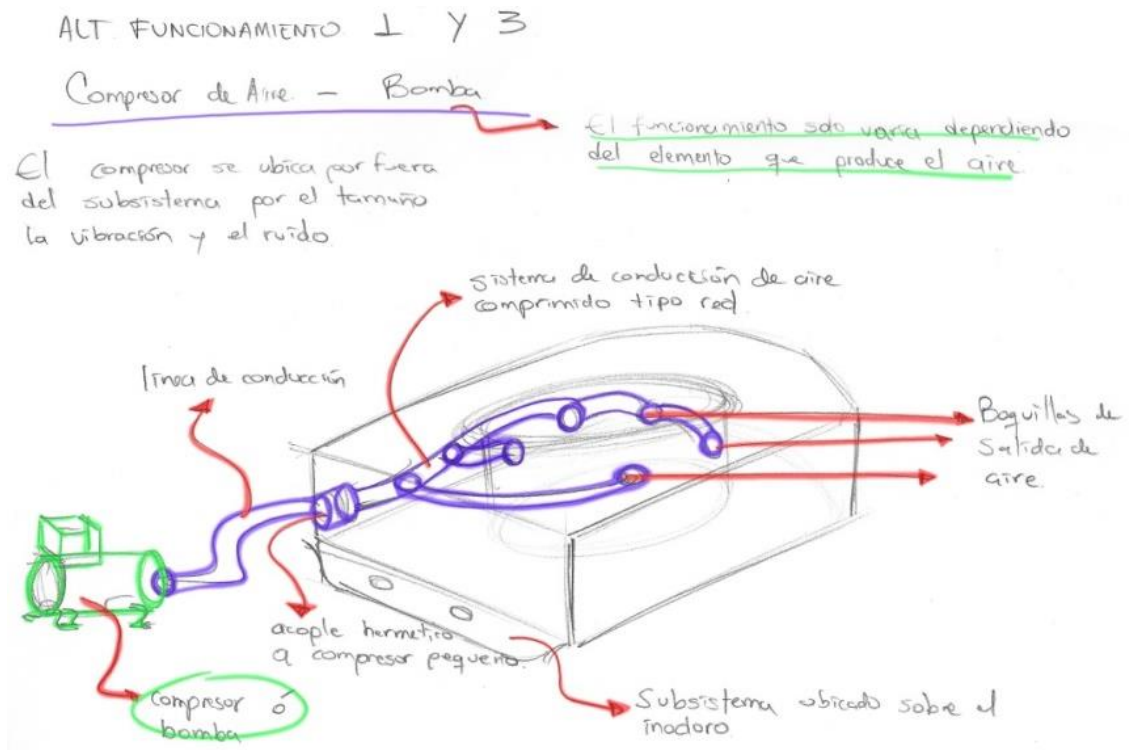 ALT. FUNCIONAMIENTO 1 Y 3
Compresor de Aire - Bomba
El funcionamiento solo varia dependiendo
del elemento que produce el aire.
El compresor se ubica por fuera
del subsistema por el tamaño
la vibración y el ruido
sistema de conducción de aire
comprimido tipo red.
línea de conducción
Boquillas de
Salida de
aire.
acople hermetico
a compresor pequeño.
compresor ó
bomba
Subsistema ubicado sobre el
inodoro.